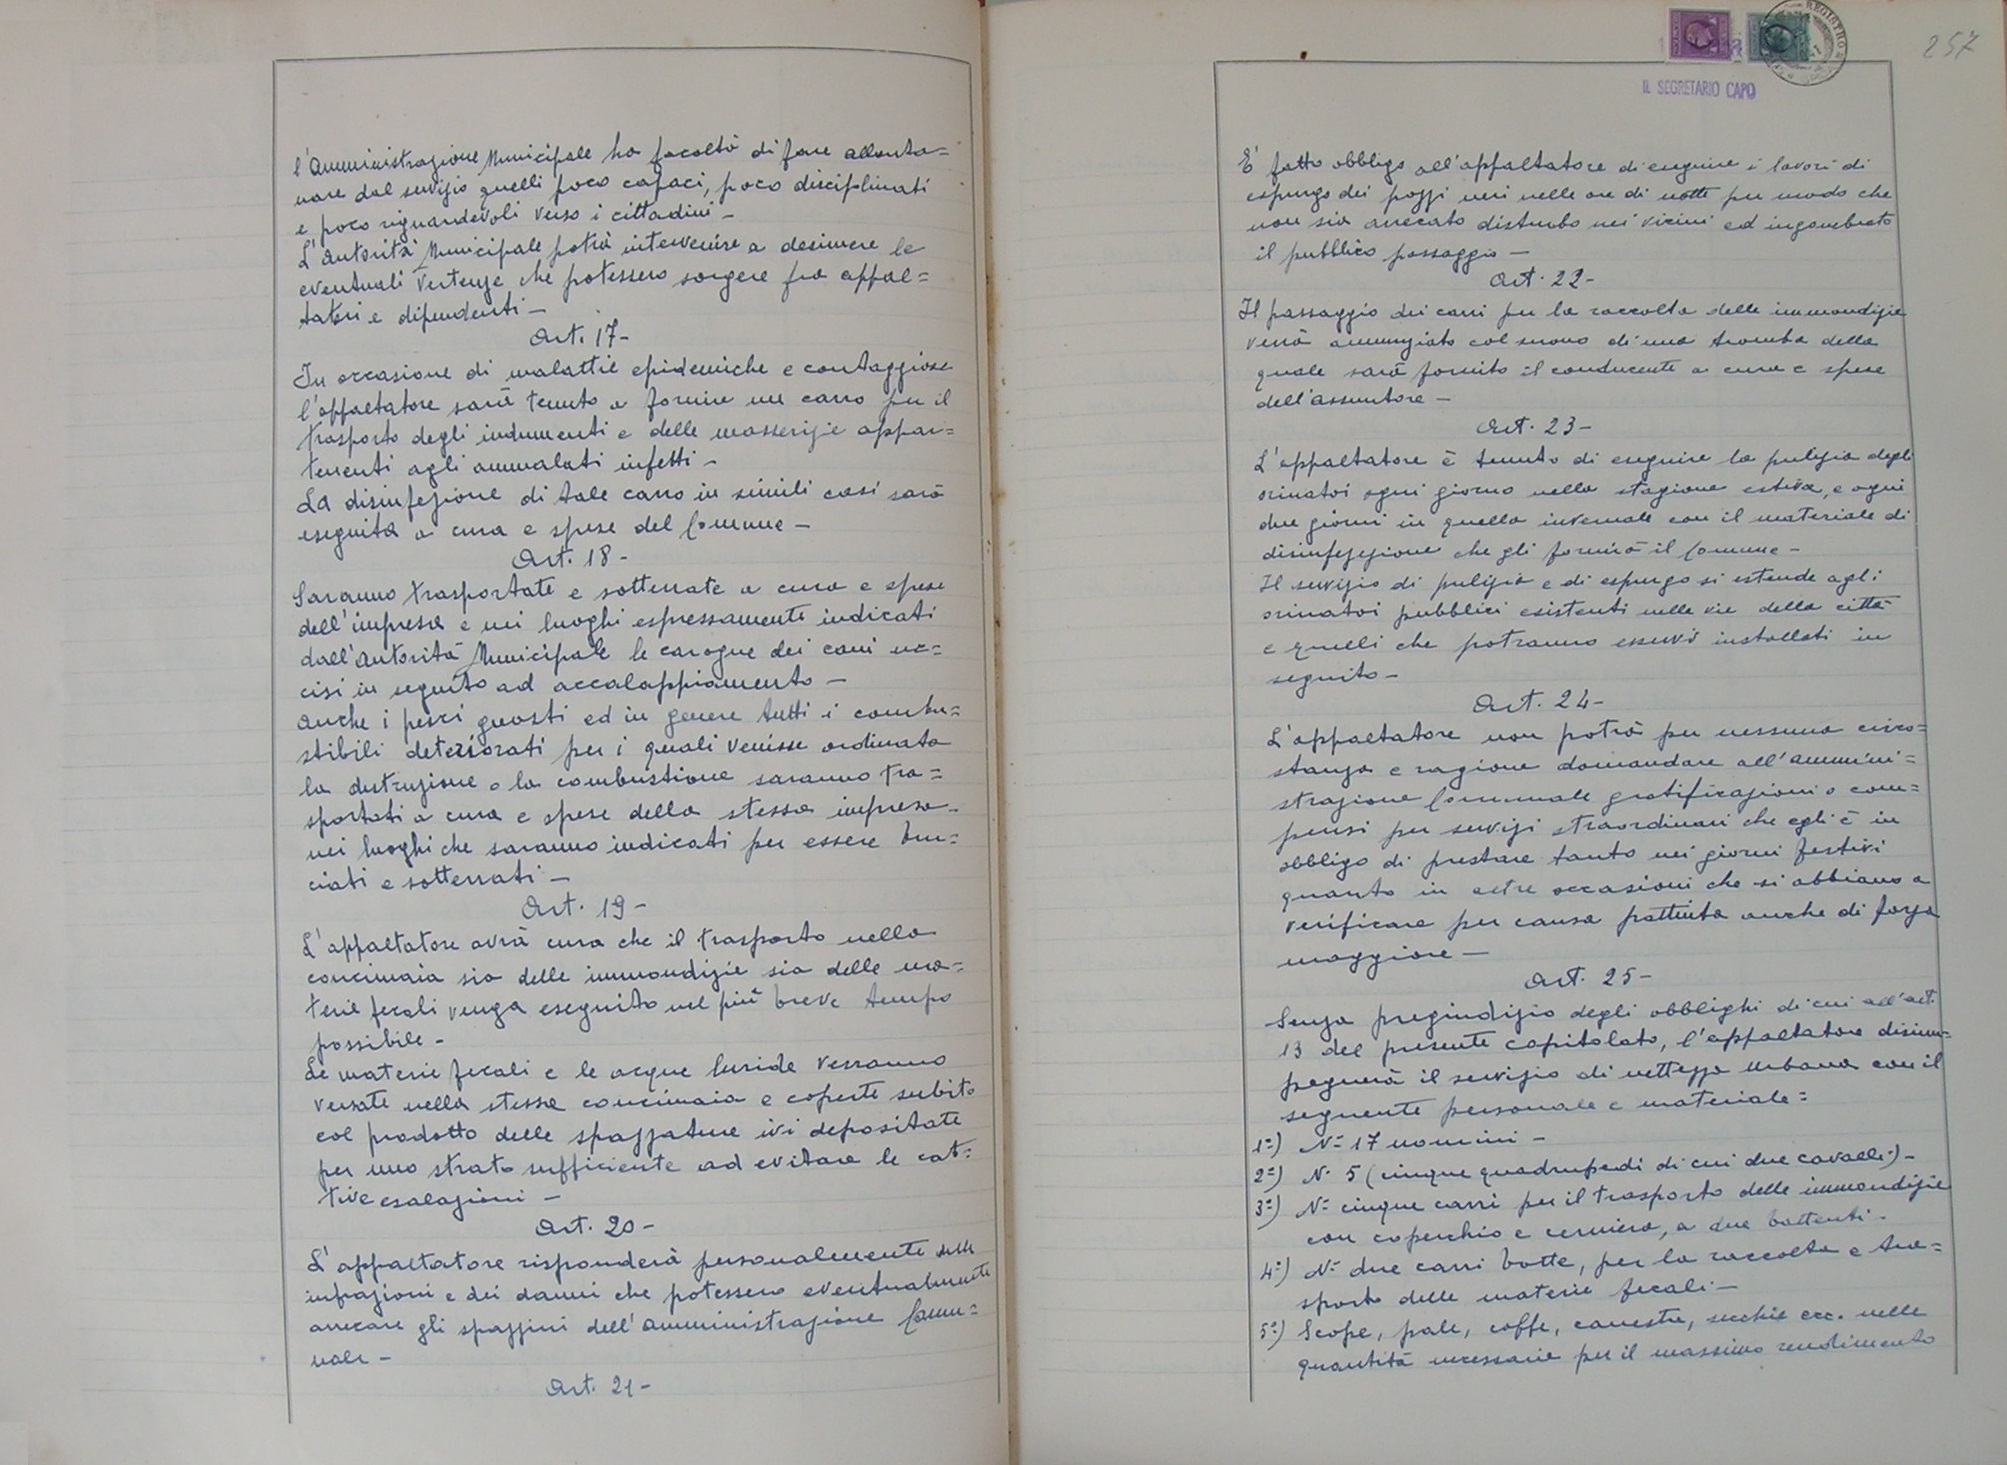 l'Amministrazione Municipale ha facoltà di fare allonta=
nare dal servizio quelli poco capaci, poco disciplinati
e poco riguardevoli verso i cittadini -
L'Autorità Municipale potrà intervenire a desimere le
eventuali vertenze che potessero sorgere fra appal=
tatori e dipendenti -
Art. 17 -
In occasione di malattie epidemiche e contaggiose
l'appaltatore sarà tenuto a fornire un carro per il
trasporto degli indumenti e delle masserizie appar=
tenenti agli ammalati infetti -
La disinfezione di tale carro in simili casi sarà
eseguita a cura e spese del Comune -
Art. 18 -
Saranno trasportate e sotterrate a cura e spese
dell'impresa e nei luoghi espressamente indicati
dall'Autorità Municipale le carogne dei cani uc=
cisi in seguito ad accalappiamento -
Anche i pesci guasti ed in genere tutti i combu=
stibili deteriorati per i quali venisse ordinata
la distruzione o la combustione saranno tra=
sportati a cura e spese della stessa impresa
nei luoghi che saranno indicati per essere bru=
ciati e sotterrati -
Art. 19 -
L'appaltatore avrà cura che il trasporto nella
concimaia sia delle immondizie sia delle ma=
terie fecali venga eseguito nel più breve tempo
possibile -
Le materie fecali e le acque luride verranno
versate nella stessa concimaia e coperte subito
col prodotto delle spazzature ivi depositate
per uno strato sufficiente ad evitare le cat=
tive esalazioni -
Art. 20 -
L'appaltatore risponderà personalmente delle
infrazioni e dei danni che potessero eventualmente
arrecare gli spazzini dell'Amministrazione Comu=
nale -
Art. 21 -
257
IL SEGRETARIO CAPO
E' fatto obbligo all'appaltatore di eseguire i lavori di
espurgo dei pozzi neri nelle ore di notte per modo che
non sia arrecato disturbo nei vicini ed ingombrato
il pubblico passaggio -
Art. 22 -
Il passaggio dei carri per la raccolta delle immondizie
verrà annunziato col suono di una tromba della
quale sarà fornito il conducente a cura e spese
dell'assuntore -
Art. 23 -
L'appaltatore è tenuto di eseguire la pulizia degli
orinatoi ogni giorno nella stagione estiva, e ogni
due giorni in quella invernale con il materiale di
disinfezione che gli fornirà il Comune -
Il servizio di pulizia e di espurgo si estende agli
orinatoi pubblici esistenti nelle vie della città
e quelli che potranno esservi installati in
seguito -
Art. 24 -
L'appaltatore non potrà per nessuna circo=
stanza e ragione domandare all'Ammini=
strazione Comunale gratificazioni o com=
pensi per servizi straordinari che egli è in
obbligo di prestare tanto nei giorni festivi
quanto in altre occasioni che si abbiano a
verificare per causa di forza
maggiore -
Art. 25 -
Senza pregiudizio degli obblighi di cui all'art.
13 del presente capitolato, l'appaltatore disim=
pegnerà il servizio di nettezza urbana con il
seguente personale e materiale:
1°) N° 17 uomini -
2°) N° 5 (cinque quadrupedi di cui due cavalli) -
3°) N° cinque carri per il trasporto delle immondizie
con coperchio e cerniera, a due battenti -
4°) N° due carri botte, per la raccolta e tra=
sporto delle materie fecali -
5°) Scope, pale, coffe, canestre, secchie ecc. nelle
quantità necessarie per il massimo rendimento